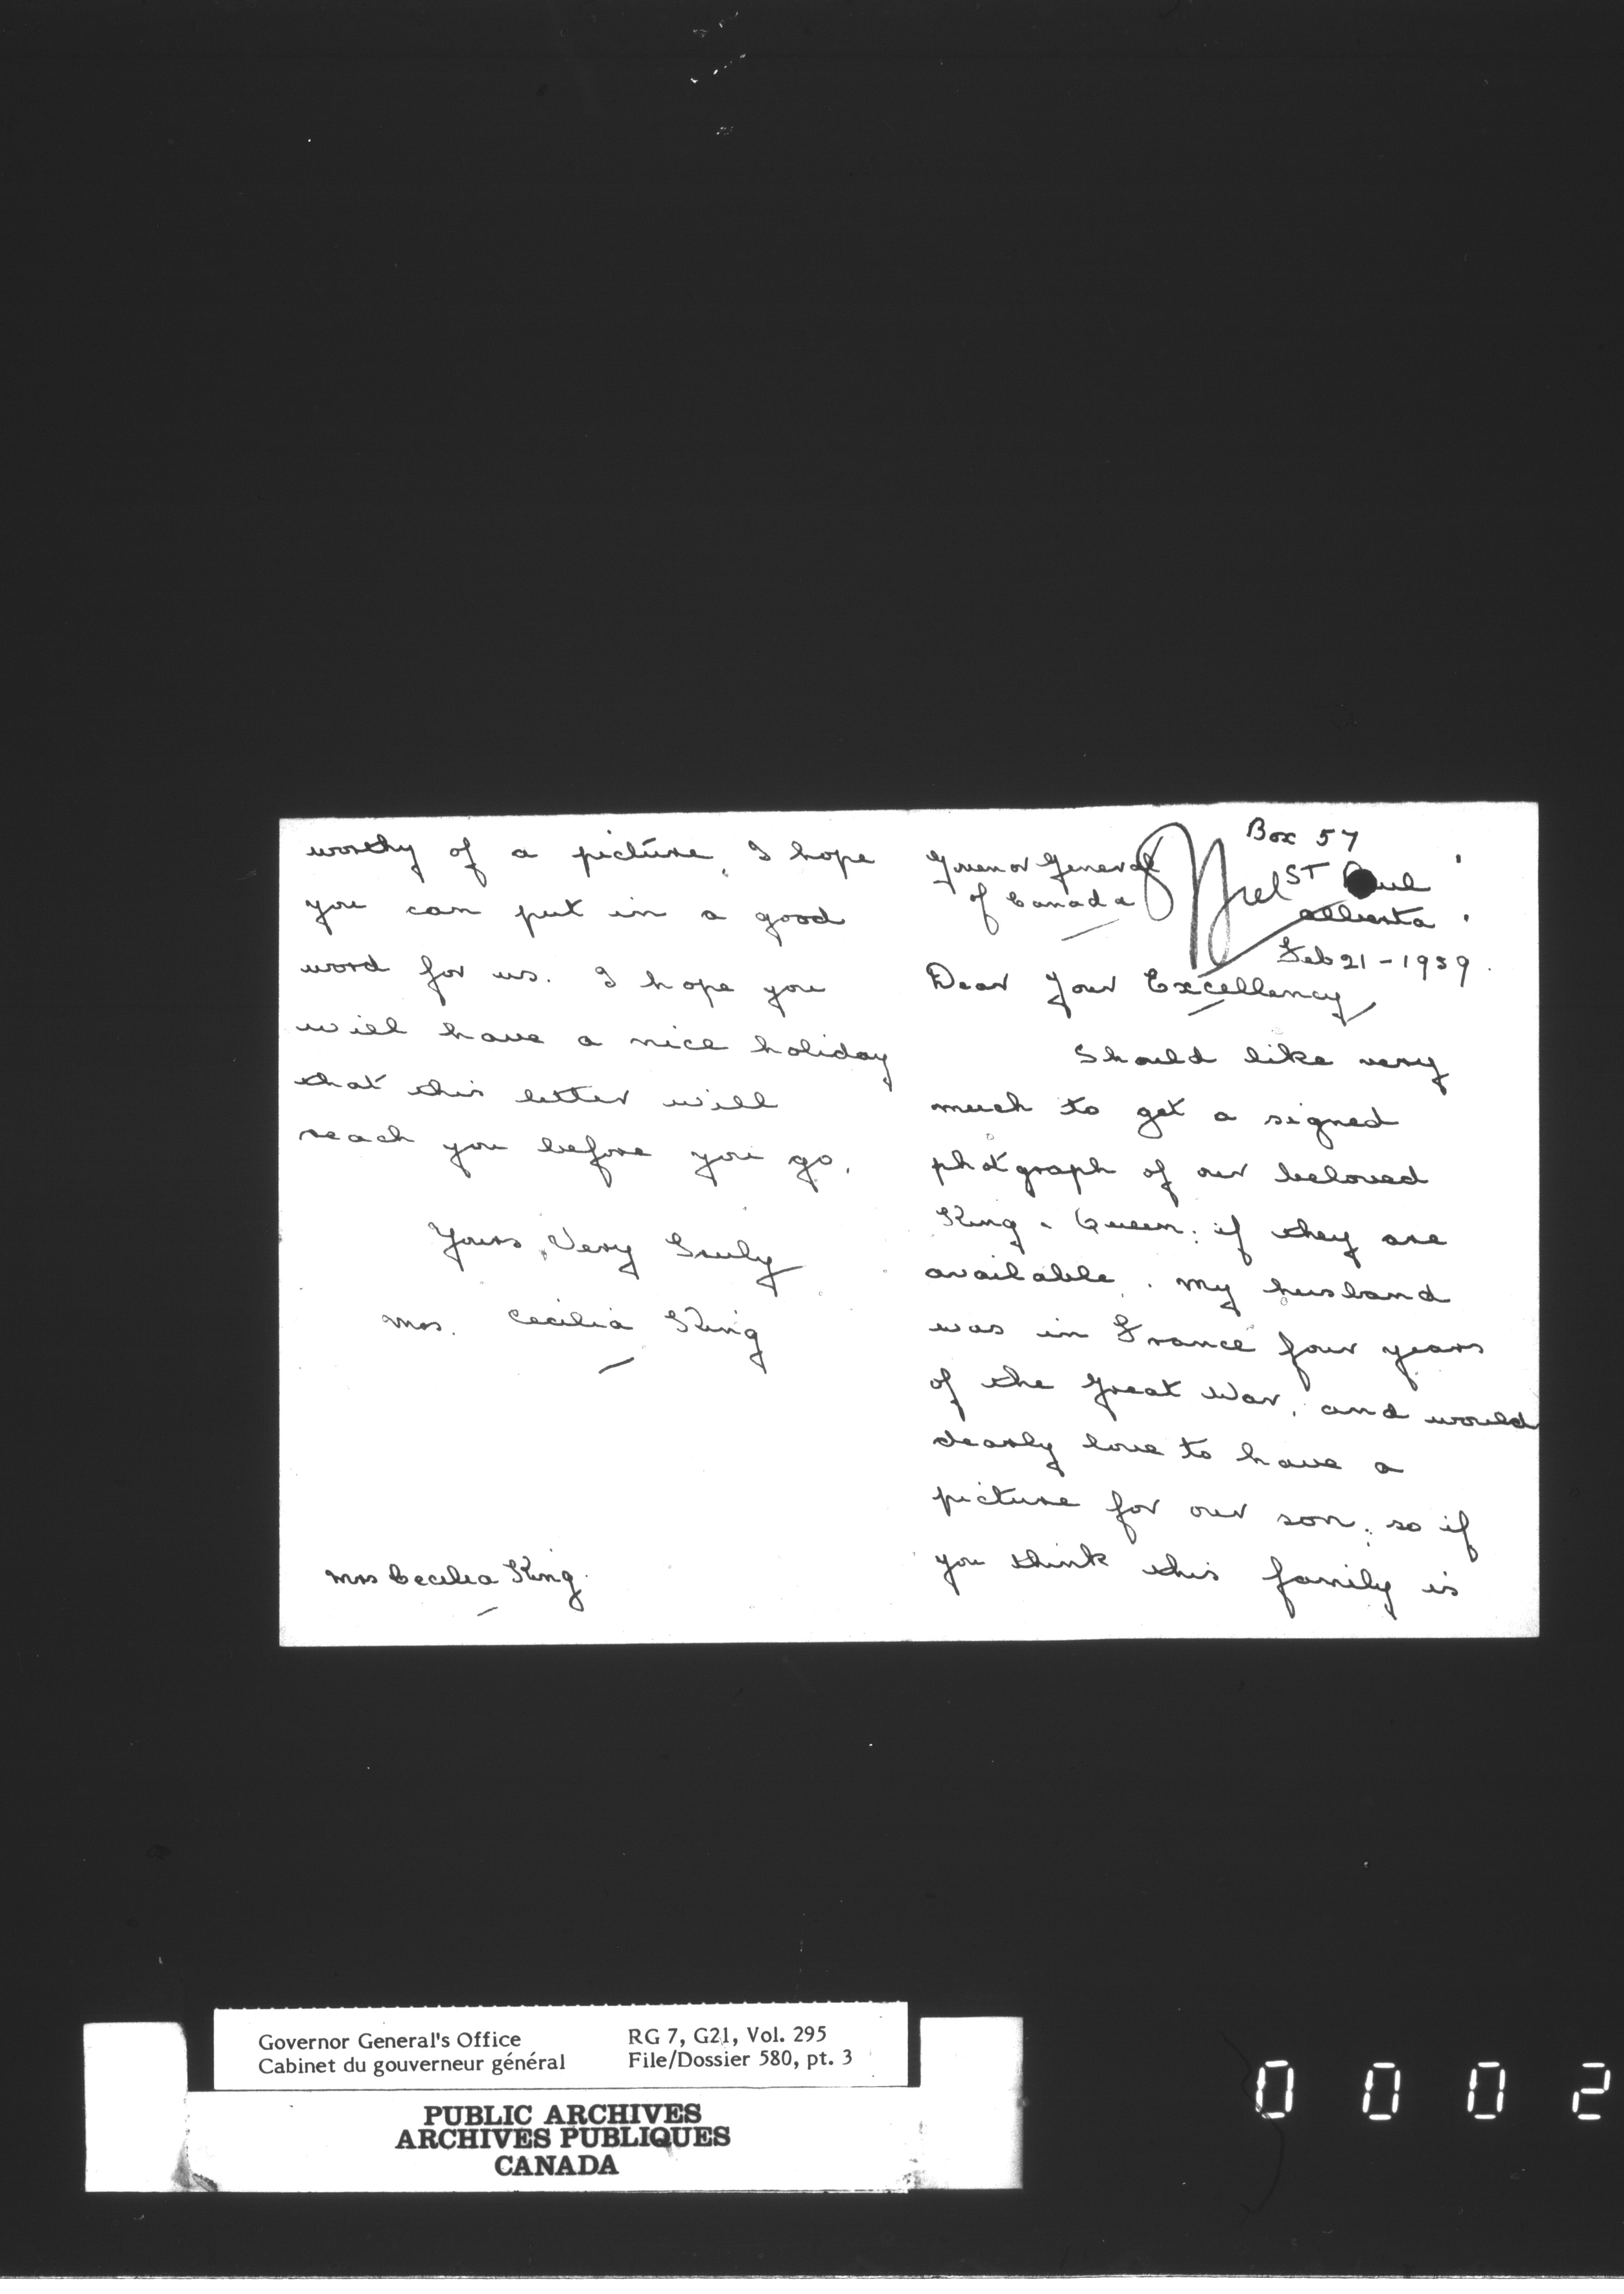 Box 57
ST Paul
Alberta.
Feb 21 - 1939.
Guvenor General
of Canada
Dear Your Excellency
Should like very
much to get a signed
photgraph of our beloved
King & Queen. if they are
available. My husband
was in France four years
of the Great War, and would
dearly love to have a
picture for our son, so if
you think this family is
worthy of a picture, I hope
you can put in a good
word for us. I hope you
will have a nice holiday
that this letter will
reach you before you go.
Yours Very Truly
Mrs. Cecilia King
Mrs Cecilia King.
Governor General's Office
Cabinet du gouverneur général
RG 7, G21, Vol. 295
File/Dossier 580, pt. 3
PUBLIC ARCHIVES
ARCHIVES PUBLIQUES
CANADA
0002